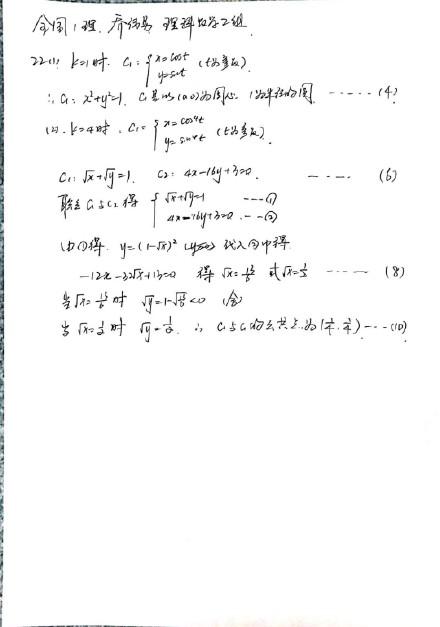 全国1理. 乔衍景 理科数学2组
22.(1) k=1时. C₁: { x=cost
y=sint (t为参数)
∴ C₁: x²+y²=1. C₁是以(0,0)为圆心. 1为半径的圆 …… (4)
(2). k=4时. C₁: { x=cos⁴t
y=sin⁴t (t为参数)
C₁: √x+√y=1. C₂: 4x-16y+3=0. …… (6)
联立C₁与C₂得 { √x+√y=1 ---①
4x-16y+3=0. ---②
由①得. y=(1-√x)² 代入②中得
-12x+32√x-13=0 得 √x=13/6 或√x=1/2 …… (8)
当√x=13/6时 √y=1-√x<0 (舍)
当√x=1/2时 √y=1/2. ∴ C₁与C₂的公共点为(1/4, 1/4) …(10)